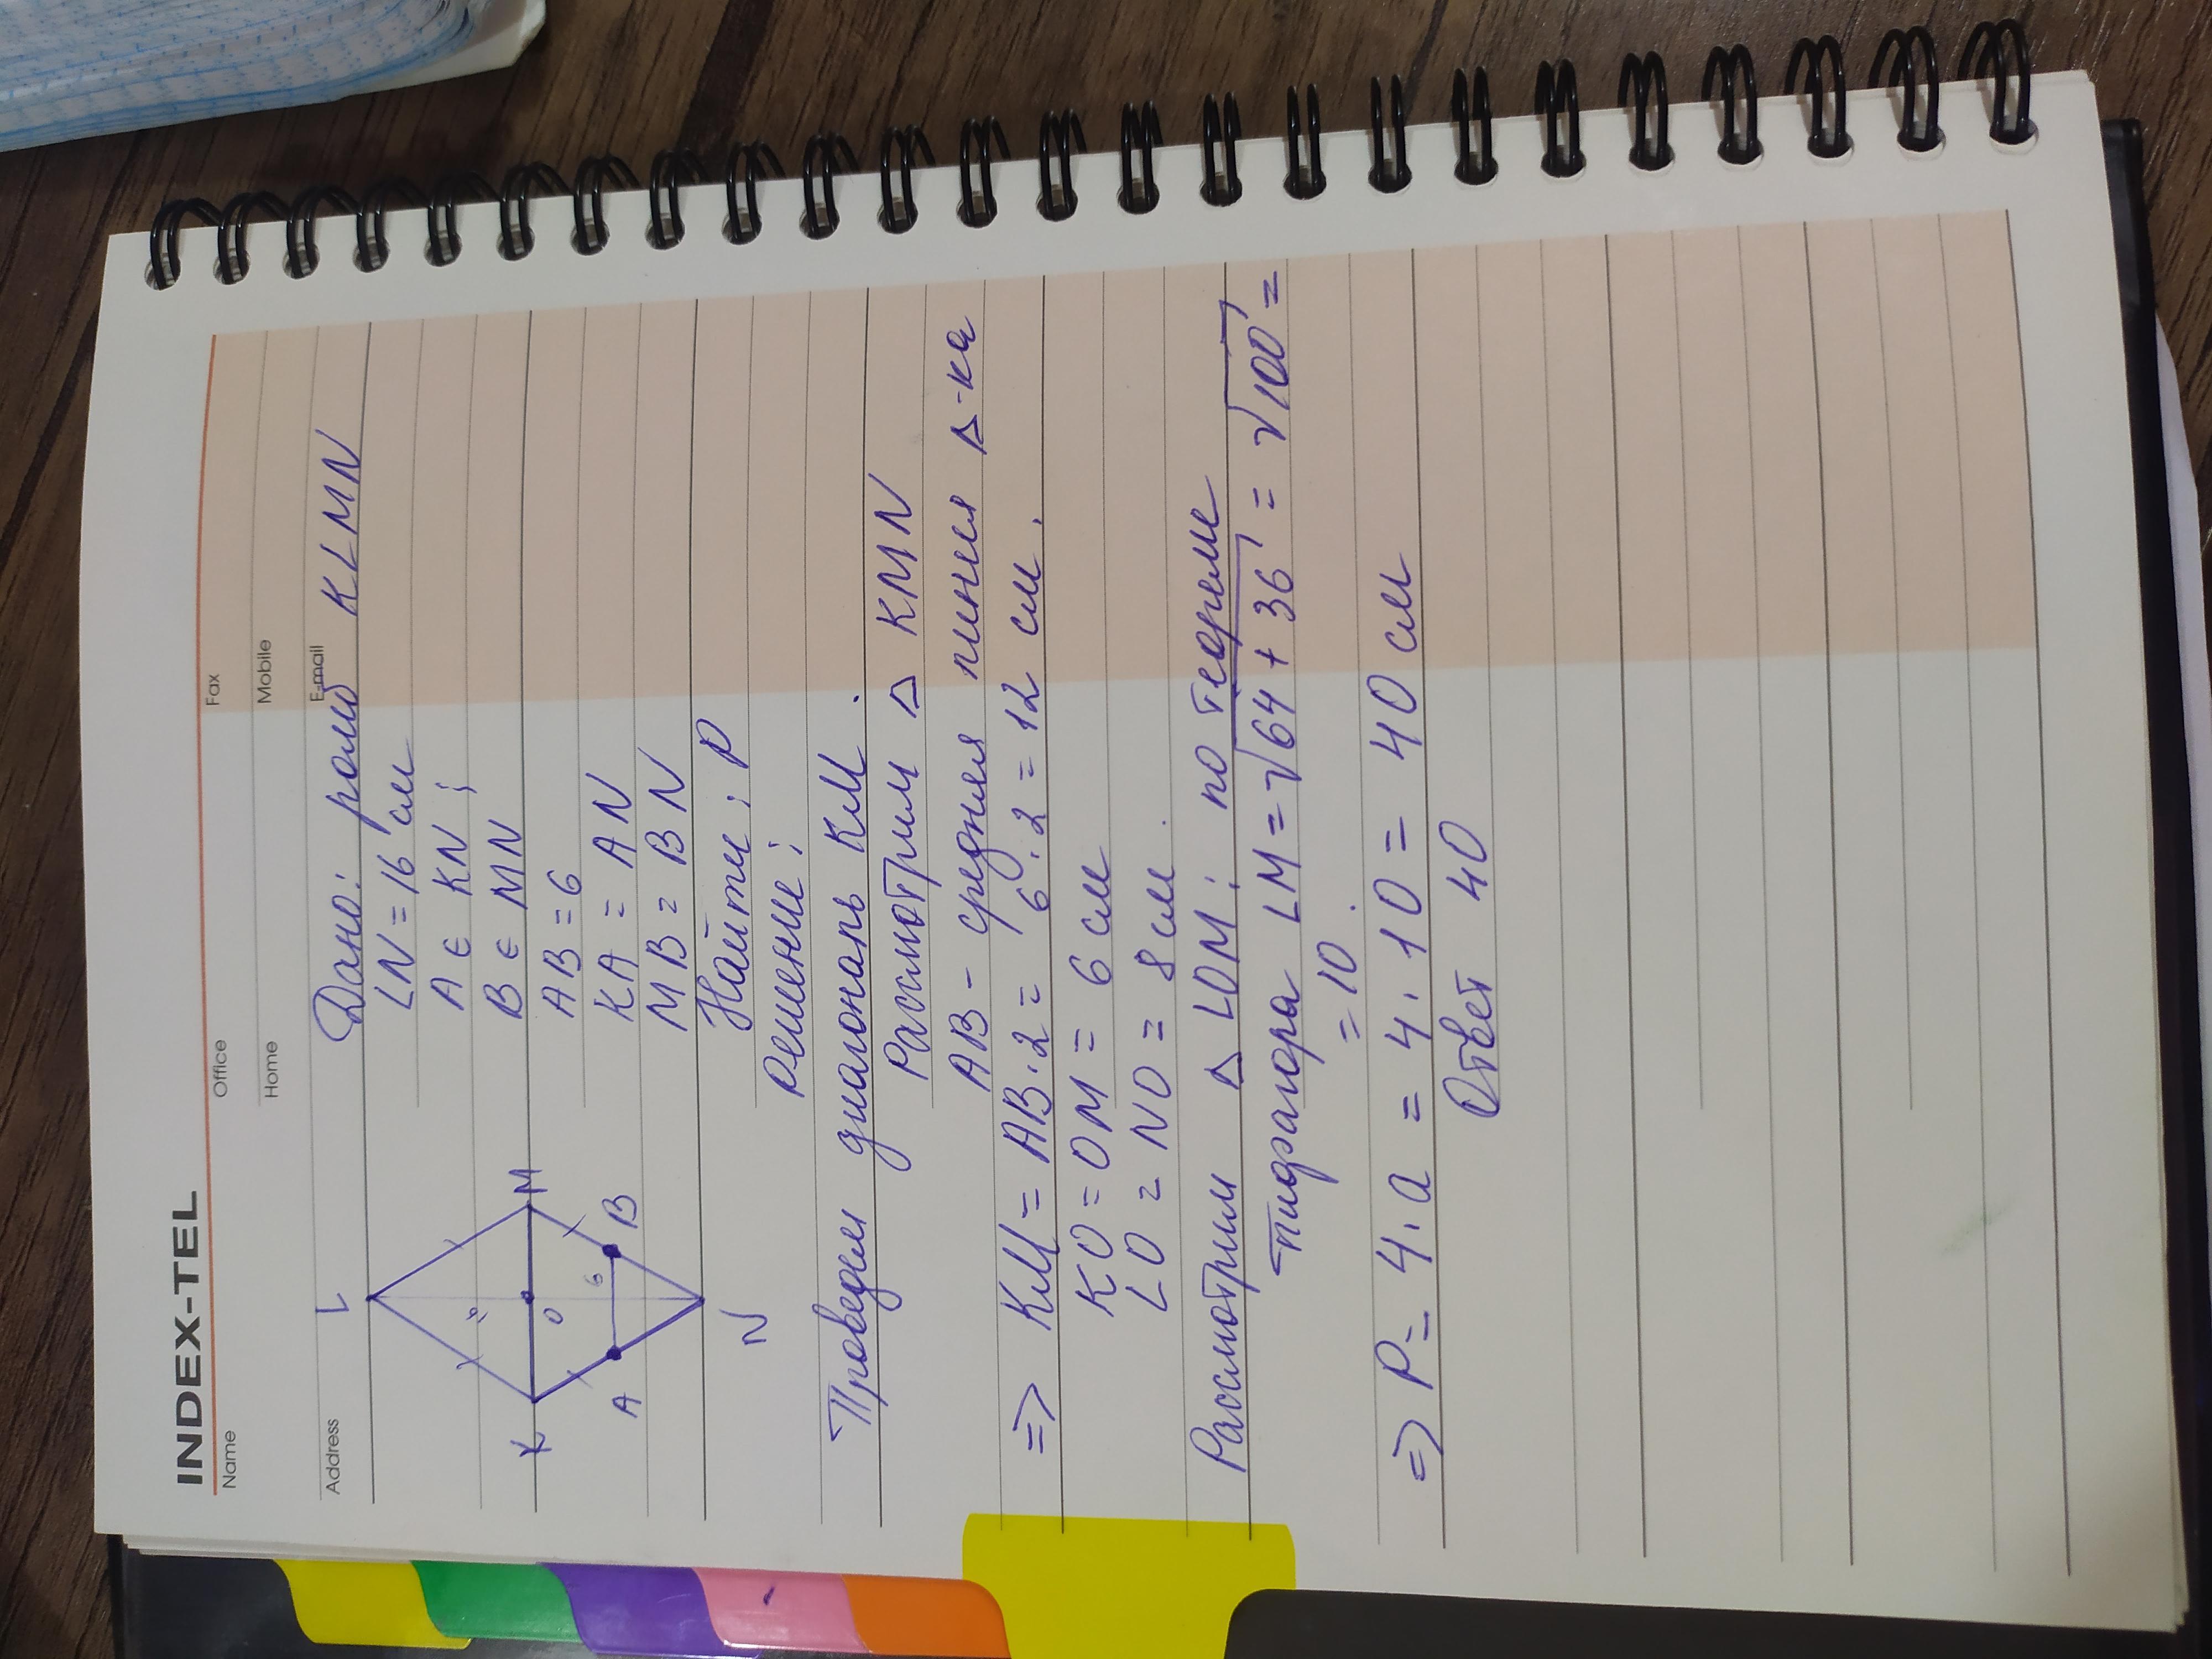 INDEX-TEL
Name
Office
Fax
Home
Mobile
Address
E-mail
Дано: ромб KLMN
LN = 16 см
A ∈ KN;
B ∈ MN
AB = 6
KA = AN
MB = BN
Найти: P
L
K
M
O
6
A
B
N
Решение:
Проведем диагональ KM.
Рассмотрим △ KMN
AB - средняя линия △-ка
=> KM = AB·2 = 6·2 = 12 см.
KO = OM = 6 см
LO = NO = 8 см.
Рассмотрим △ LOM: по теореме
Пифагора LM = √64 + 36 = √100 =
= 10.
=> P = 4·a = 4·10 = 40 см
Ответ 40